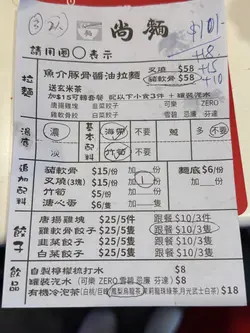 2人
$101-
+18
+15
+10
尚麵
請用圈○表示
拉麵
魚介豚骨醬油拉麵
叉燒 $58
豬軟骨 $58
送玄米茶
加$15可轉套餐 配以下小食3件 + 罐裝汽水
唐揚雞塊 白菜餃子
韭菜餃子
可樂 ZERO
雪碧 忌廉 芬達
濃度
濃
淡
基本配料
海帶 不要
竹筍 不要
多 不要
追加配料
豬軟骨 $15/份
叉燒(3塊) $15/份
竹筍 $5/份
溏心蛋 $6/份
麵底 $6/份
餃子
唐揚雞塊 $25/5件 跟餐 $10/3件
雞軟骨餃子 $25/5隻 跟餐 $10/3隻
韭菜餃子 $25/5隻 跟餐 $10/3隻
白菜餃子 $25/5隻 跟餐 $10/3隻
飲品
自製檸檬梳打水 $8
罐裝汽水(可樂 ZERO 雪碧 忌廉 芬達) $8
有機冷泡茶(白桃/巨峰/鳳梨烏龍茶/茉莉龍珠綠茶/月光武士白茶) $18